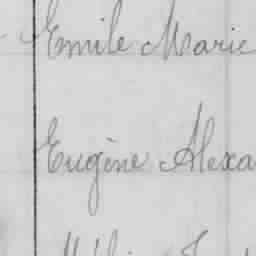 Emile Marie
Eugène Alexa